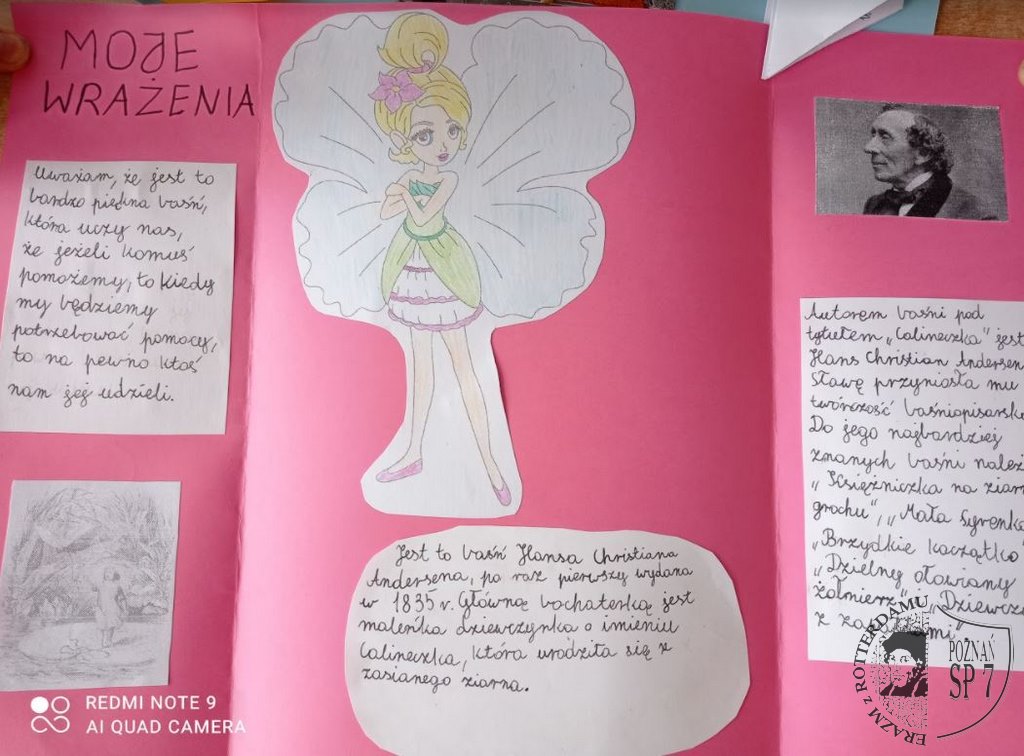 MOJE
WRAŻENIA
Uważam, że jest to
bardzo piękna baśń,
która uczy nas,
że jeżeli komuś
pomożemy, to kiedy
my będziemy
potrzebować pomocy,
to na pewno ktoś
nam jej udzieli.
Jest to baśń Hansa Christiana
Andersena, po raz pierwszy wydana
w 1835 r. Główną bochaterką jest
maleńka dziewczynka o imieniu
Calineczka, która urodziła się z
zasianego ziarna.
Autorem baśni pod
tytułem „Calineczka" jest
Hans Christian Andersen
Sławę przyniosła mu
twórczość baśniopisarsk
Do jego najbardziej
znanych baśni należ
„Księżniczka na ziarn
grochu", „Mała Syrenk
„Brzydkie kaczątko
„Dzielny ołowiany
żołnierz" „Dziewcz
z zapałkami"
REDMI NOTE 9
AI QUAD CAMERA
ERAZM z ROTTERDAMU
POZNAŃ
SP 7